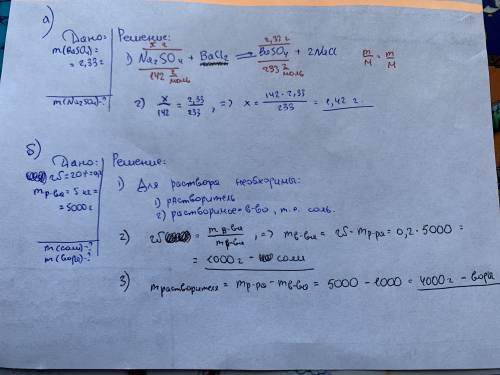 а)
Дано:
m(BaSO₄)=
= 2,33 г
m(Na₂SO₄)-?
Решение:
x г 2,33 г
1) Na₂SO₄ + BaCl₂ = BaSO₄ + 2NaCl
142 г/моль 233 г/моль
m/M = m/M
2) x/142 = 2,33/233, => x = 142·2,33/233 = 1,42 г.
б)
Дано:
= 20% = 0,2
m р-ва = 5 кг =
= 5000 г
m(соли)-?
m(воды)-?
Решение:
1) Для раствора необходимы:
1) растворитель
2) растворимое в-во, т.е. соль.
2) = m в-ва/m р-ва, => m в-ва = m р-ра = 0,2 · 5000 =
= 1000 г - соли
3) m растворителя = m р-ра - m в-ва = 5000 - 1000 = 4000 г - воды